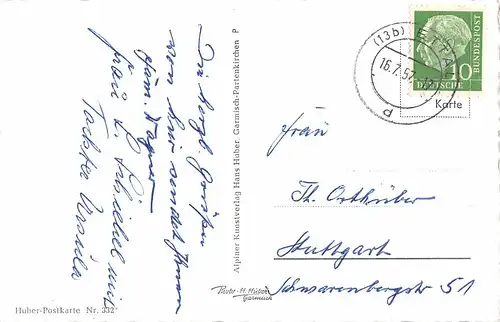 Die herzl. Grüßen
von hier sendet Ihnen
fam. Wagner
frau L. Schiebel mit
Tochter Ursula
Alpiner Kunstverlag Hans Huber, Garmisch-Partenkirchen P
Huber-Postkarte Nr. 332
Photo-H. Huber
Garmisch
(13b) ETTAL
16.7.57
P
DEUTSCHE
BUNDESPOST
10
Karte
Frau
Th. Orthüber
Stuttgart
Schwarenbergstr 51